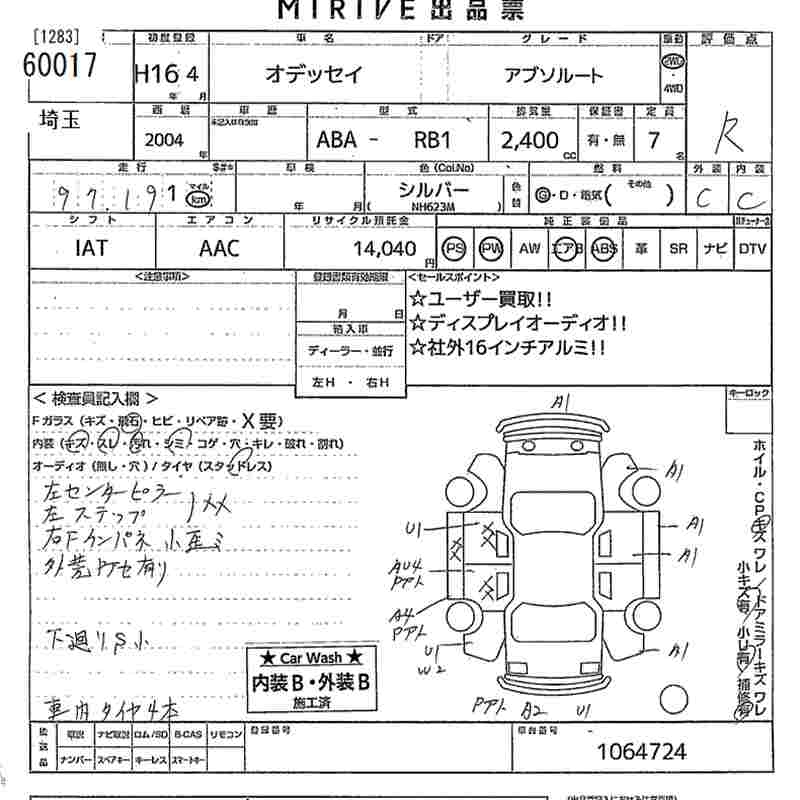 MIRIVE 出品票
[1283]
60017
初度登録 車名 ドア グレード 駆動 評価点
H16 4 オデッセイ アブソルート 2WD・4WD
年 月
埼玉
西暦 車歴 型式 排気量 保証書 定員
未記入は自家用
2004年 ABA - RB1 2,400cc 有・無 7名 R
走行 車検 色(Col.No) 燃料 外装 内装
97,191 マイル km 年 月 シルバー 色替 G・D・電気( その他 ) C C
( NH623M )
シフト エアコン リサイクル預託金 純正装備品
IAT AAC 14,040円 PS PW AW エアB ABS 革 SR ナビ DTV
<注意事項> 登録書類有効期限 <セールスポイント>
月 日
☆ユーザー買取!!
☆ディスプレイオーディオ!!
☆社外16インチアルミ!!
輸入車
ディーラー・並行
左H ・ 右H
<検査員記入欄> キーロック
Fガラス (キズ・飛石・ヒビ・リペア跡・X要)
内装 (キズ・スレ・汚れ・シミ・コゲ・穴・キレ・破れ・割れ)
オーディオ (無し・穴) / タイヤ (スタッドレス)
左センターピラー
左ステップ
右Fインパネ 小歪ミ
下廻りS小
車内タイヤ4本
★ Car Wash ★
内装B・外装B
施工済
A1
A1
U1 A1
A1
AU4
PPト
A4
PPト
U1 A1
W2
PPト A2 U1
ホイル・CPキズワレ/ドアミラーキズワレ
小キズ有/小U有/補修有
後装品 取説 ナビ取説 ロム/SD B-CAS リモコン 登録番号 車台番号
ナンバー スペアキー キーレス スマートキー
1064724